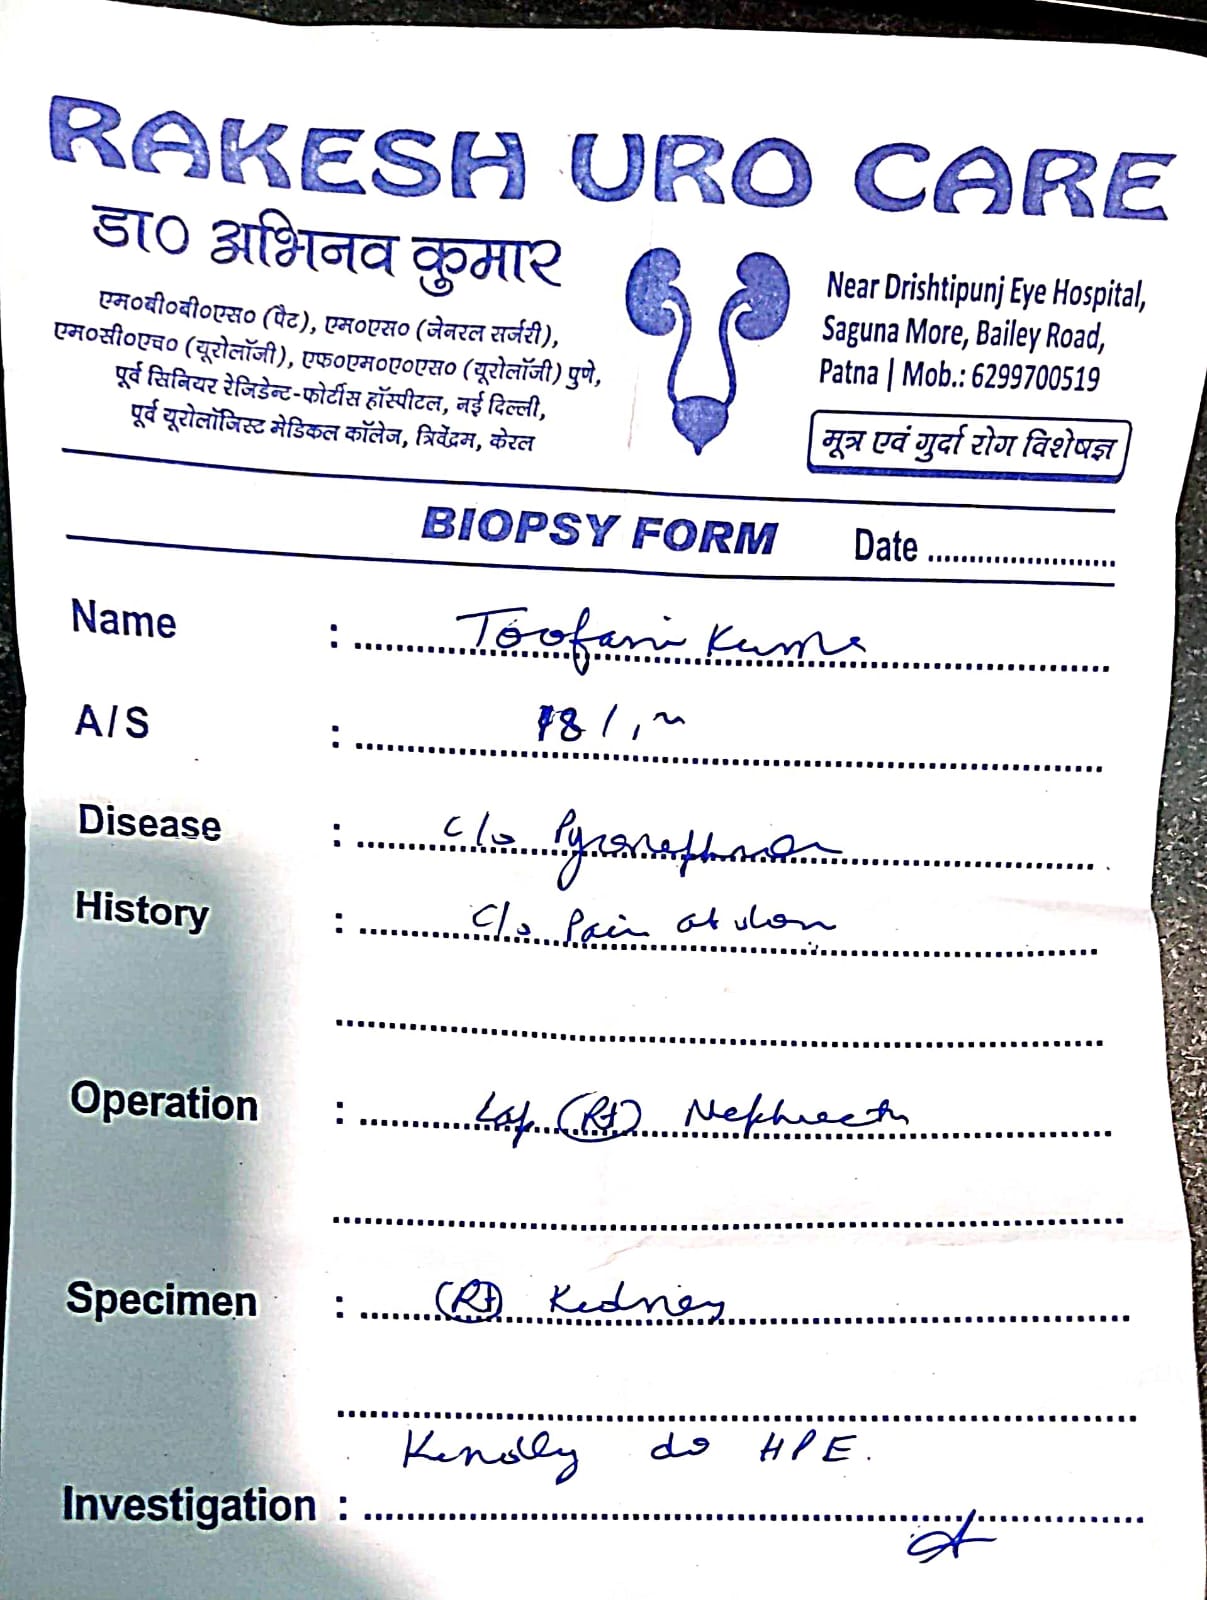 RAKESH URO CARE
डा० अभिनव कुमार
एम०बी०बी०एस० (पैट), एम०एस० (जेनरल सर्जरी),
एम०सी०एच० (यूरोलॉजी), एफ०एम०ए०एस० (यूरोलॉजी) पुणे,
पूर्व सिनियर रेजिडेन्ट-फोर्टीस हॉस्पीटल, नई दिल्ली,
पूर्व यूरोलॉजिस्ट मेडिकल कॉलेज, त्रिवेंद्रम, केरल
Near Drishtipunj Eye Hospital,
Saguna More, Bailey Road,
Patna | Mob.: 6299700519
मूत्र एवं गुर्दा रोग विशेषज्ञ
BIOPSY FORM Date
Name : Toofani
A/S : 18/
Disease : c/o
History : C/o Pain at
Operation : Lap (Rt)
Specimen : (Rt) Kidney
Kindly do HPE.
Investigation :